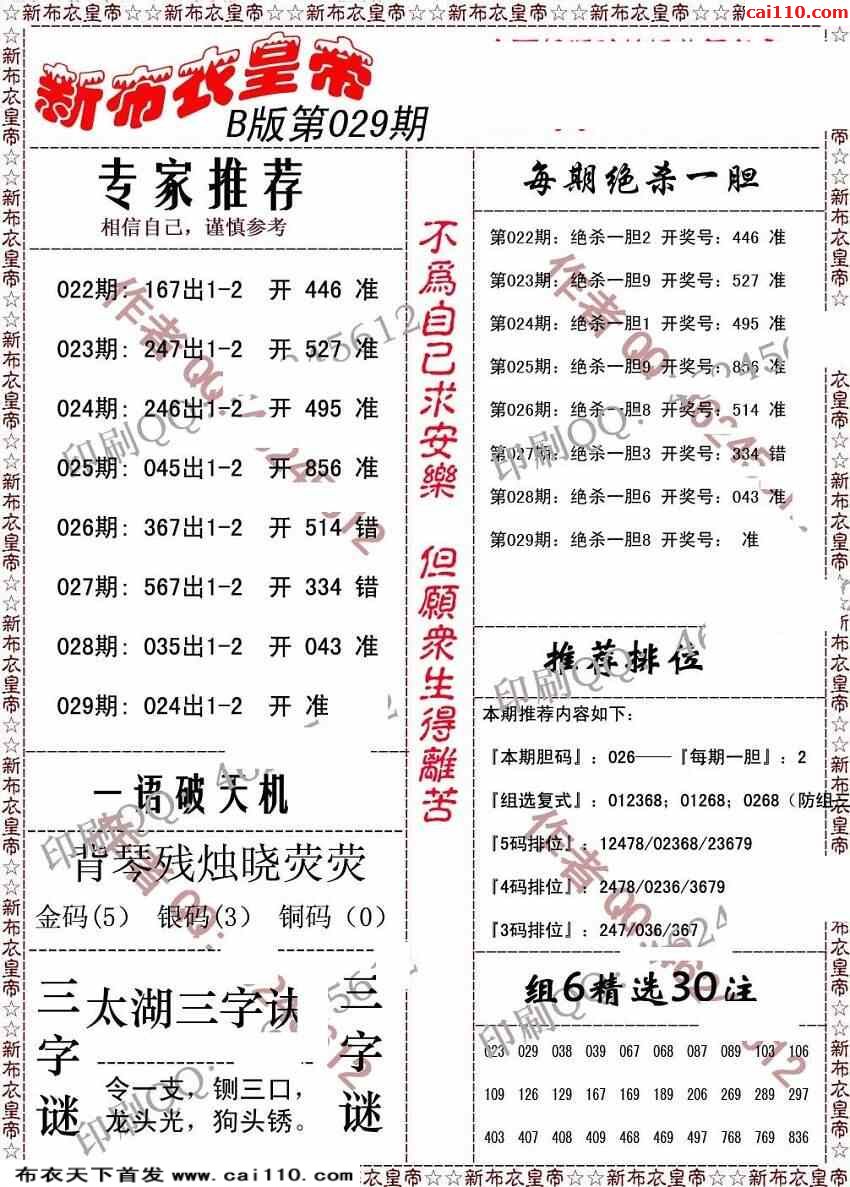 ☆新布衣皇帝☆☆新布衣皇帝☆☆新布衣皇帝☆☆新布衣皇帝☆☆新布衣皇帝☆☆
cai110.com
新布衣皇帝
B版第029期
专家推荐
相信自己，谨慎参考
022期: 167出1-2 开 446 准
023期: 247出1-2 开 527 准
024期: 246出1-2 开 495 准
025期: 045出1-2 开 856 准
026期: 367出1-2 开 514 错
027期: 567出1-2 开 334 错
028期: 035出1-2 开 043 准
029期: 024出1-2 开 准
一语破天机
背琴残烛晓荧荧
金码(5) 银码(3) 铜码（0）
三字谜
太湖三字诀
令一支，铡三口，
龙头光，狗头锈。
三字谜
不為自己求安樂 但願衆生得離苦
每期绝杀一胆
第022期: 绝杀一胆2 开奖号: 446 准
第023期: 绝杀一胆9 开奖号: 527 准
第024期: 绝杀一胆1 开奖号: 495 准
第025期: 绝杀一胆9 开奖号: 856 准
第026期: 绝杀一胆8 开奖号: 514 准
第027期: 绝杀一胆3 开奖号: 334 错
第028期: 绝杀一胆6 开奖号: 043 准
第029期: 绝杀一胆8 开奖号: 准
推荐排位
本期推荐内容如下:
『本期胆码』: 026——『每期一胆』: 2
『组选复式』: 012368; 01268; 0268（防组三
『5码排位』: 12478/02368/23679
『4码排位』: 2478/0236/3679
『3码排位』: 247/036/367
组6精选30注
023 029 038 039 067 068 087 089 103 106
109 126 129 167 169 189 206 269 289 297
403 407 408 409 468 469 497 768 769 836
布衣天下首发 www.cai110.com
☆新布衣皇帝☆☆新布衣皇帝☆☆新布衣皇帝☆